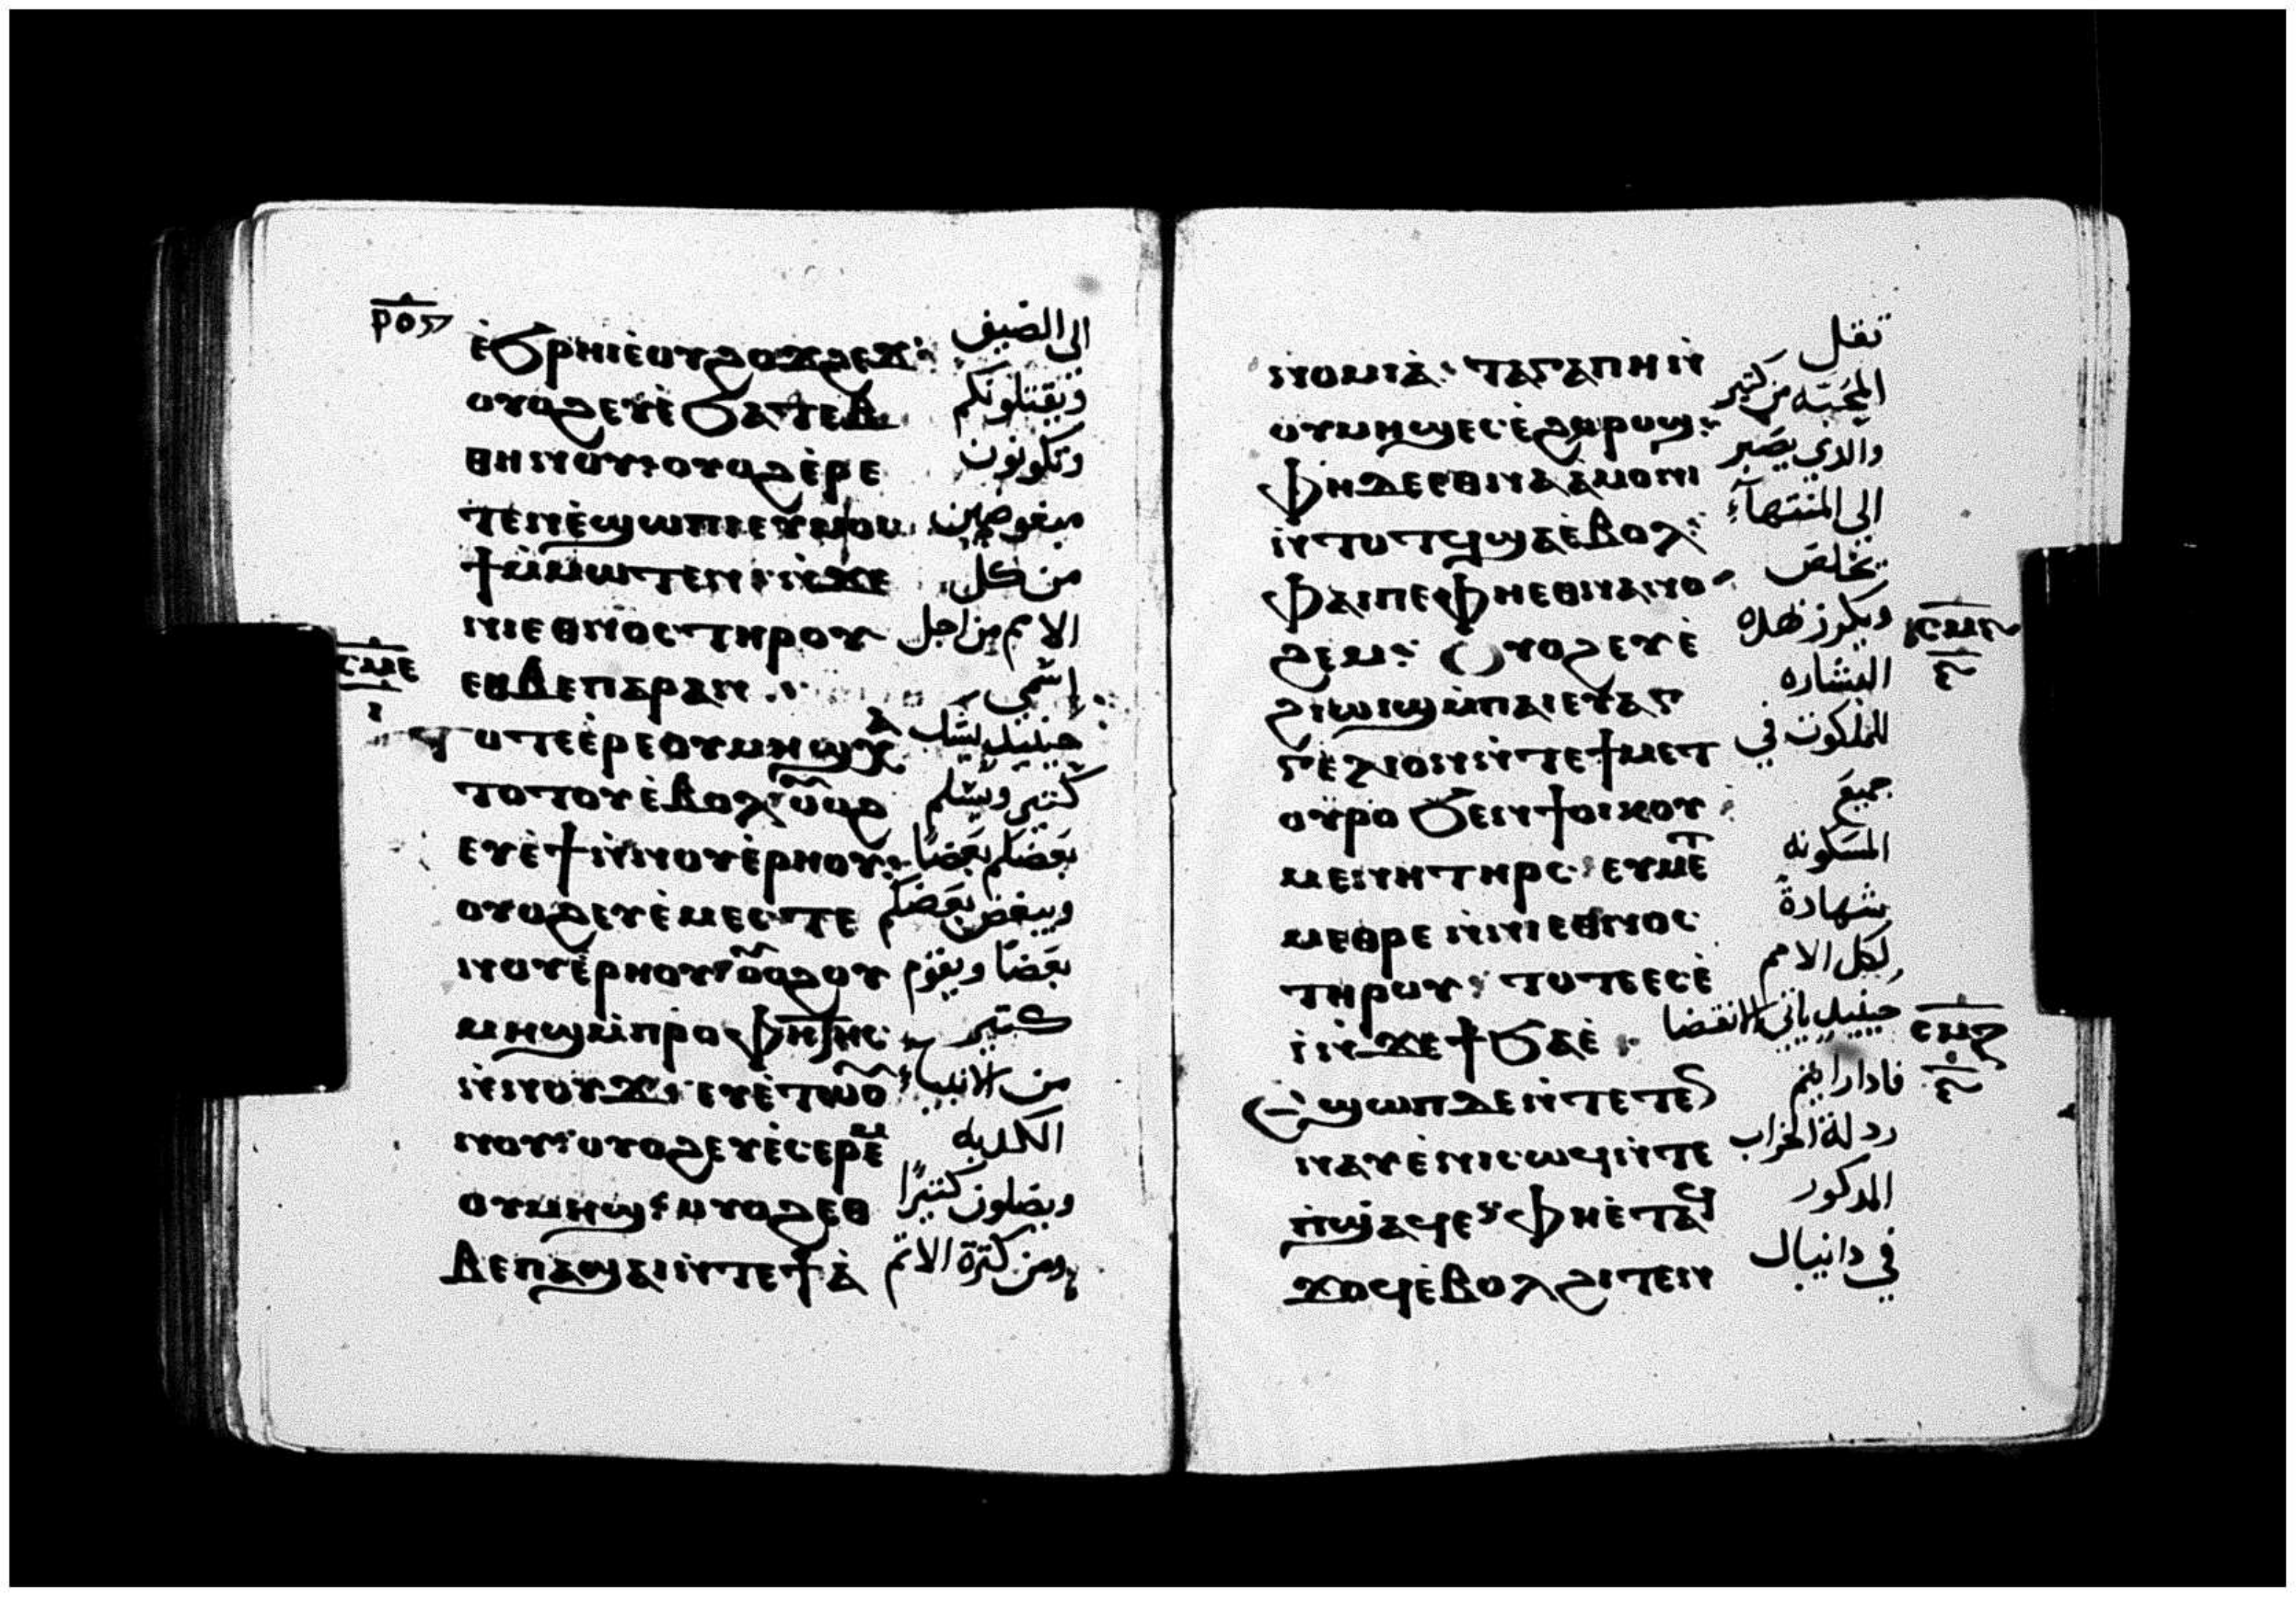 ⲣⲟⲋ
ⲉ̇ϧⲣⲏⲓⲉ̇ⲟⲩϩⲟϫϩⲉϫ: الى الضيق
ⲟⲩⲟϩⲉⲩⲉ̇ϧⲁⲧⲉⲃ ويقتلونكم
ⲑⲏⲛⲟⲩ: ⲟⲩⲟϩⲉ̇ⲣⲉ وتكونون
ⲧⲉⲛⲉ̇ϣⲱⲡⲓⲉⲩⲙⲟⲥ مبغوضين
ϯⲙ̇ⲙⲱⲧⲉⲛ: ⲛ̇ϫⲉ من كل
ⲛⲓⲉⲑⲛⲟⲥⲧⲏⲣⲟⲩ الامم من اجل
ⲥⲙⲉ
ⲉⲑⲃⲉⲡⲁⲣⲁⲛ إسمي
ⲧⲟⲧⲉⲉ̇ⲣⲉⲟⲩⲙⲏϣⲭⲁ حينيد يشك
ⲧⲟⲧⲟⲩⲉ̇ⲃⲟⲗ: ⲟⲩⲟϩ كتير ويسلم
ⲉⲩⲉ̇ϯⲛ̇ⲛⲟⲩⲉ̇ⲣⲏⲟⲩ: بعضكم بعضًا
ⲟⲩⲟϩⲉⲩⲉ̇ⲙⲉⲥⲧⲉ ويبغض بعضكم
ⲛⲟⲩⲉ̇ⲣⲏⲟⲩ: ⲟⲩⲟϩⲟⲩ بعضًا ويقوم
ⲙⲏϣⲙ̇ⲡⲣⲟⲫⲏⲧⲏⲥ كتير
ⲛ̇ⲛⲟⲩϫ: ⲉⲩⲉ̇ⲧⲱⲟ̅ من الانبياء
ⲛⲟⲩ: ⲟⲩⲟϩⲉⲩⲉ̇ⲥⲉⲣⲉⲙ الكدبه
ⲟⲩⲙⲏϣ: ⲟⲩⲟϩⲉⲑ ويضلون كتيرًا
ⲃⲉⲡⲁϣⲁⲓⲛ̇ⲧⲉϯⲁ̇ ومن كترة الاتم
ⲛⲟⲙⲓⲁ̇: ⲧⲁⲅⲁⲡⲏⲛ̇ تقل
ⲟⲩⲙⲏϣⲉⲥⲉ̇ϩⲣⲟϣ: المحبه من كتير
ⲫⲏⲇⲉⲉⲑⲛⲁⲁⲙⲟⲛⲓ والدي يصبر
ⲛ̇ⲧⲟⲧϥϣⲁⲉ̇ⲃⲟⲗ: الى المنتهآء
ⲫⲁⲓⲡⲉⲫⲏⲉⲑⲛⲁⲛⲟ يخلص
ϩⲉⲙ: ⲟⲩⲟϩⲉⲩⲉ̇ ويكرز بهده
ϩⲓⲱⲓϣⲙ̇ⲡⲁⲓⲉⲩⲁⲅ البشاره
ⲅⲉⲗⲓⲟⲛⲛ̇ⲧⲉϯⲙⲉⲧ للملكوت في
ⲟⲩⲣⲟϧⲉⲛϯⲟⲓⲕⲟⲩ جميع
ⲙⲉⲛⲏⲧⲏⲣⲥ: ⲉⲩⲙⲉⲧ المسكونه
ⲙⲉⲑⲣⲉⲛ̇ⲛⲓⲉⲑⲛⲟⲥ شهادةً
ⲧⲏⲣⲟⲩ: ⲧⲟⲧⲉⲉⲥⲉ̇ لكل الامم
ⲥⲙⲏ
ⲓ̇ⲛ̇ϫⲉϯϧⲁⲉ̇ حينيد ياتي الانقضا
ⲉϣⲱⲡⲇⲉⲛ̇ⲧⲉⲧⲉⲛ فادا رايتم
ⲛⲁⲩⲉ̇ⲡⲓⲥⲱϥⲛ̇ⲧⲉ ردلة الخراب
ⲡ̇ϣⲁϥⲉ: ⲫⲏⲉ̇ⲧⲁⲩ المدكور
ϫⲟϥⲉ̇ⲃⲟⲗϩⲓⲧⲉⲛ في دانيال